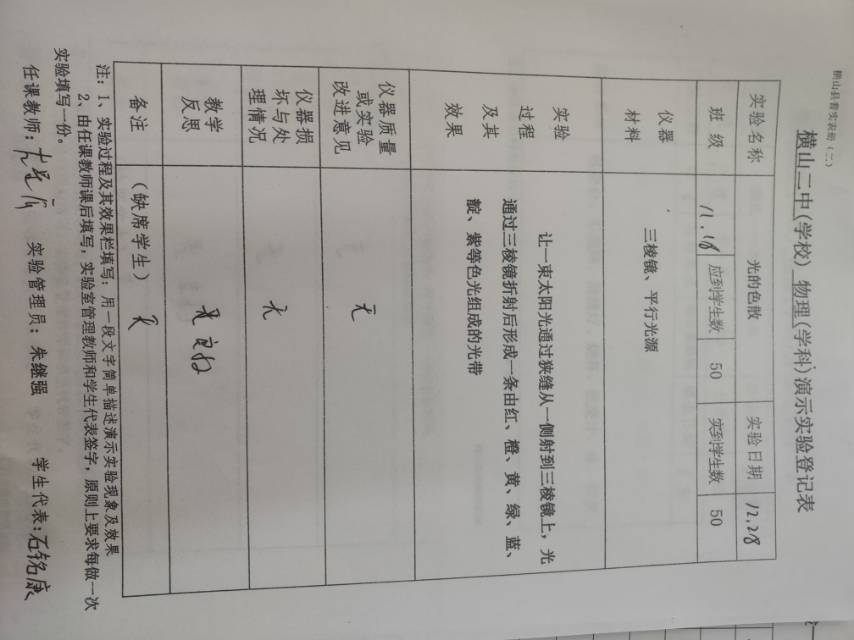 横山县普实表册（二）
横山二中(学校) 物理(学科)演示实验登记表
实验名称 光的色散 实验日期 12.28
班级 应到学生数 50 实到学生数 50
仪器
材料
三棱镜、平行光源
实验
过程
及其
效果
让一束太阳光通过狭缝从一侧射到三棱镜上，光
通过三棱镜折射后形成一条由红、橙、黄、绿、蓝、
靛、紫等色光组成的光带
仪器质量
或实验
改进意见
无
仪器损
坏与处
理情况
无
教学
反思
备注 （缺席学生） 无
注：1、实验过程及其效果栏填写：用一段文字简单描述演示实验现象及效果
2、由任课教师课后填写，实验室管理教师和学生代表签字，原则上要求每做一次
实验填写一份。
任课教师: 实验管理员：朱继强 学生代表:石铭康